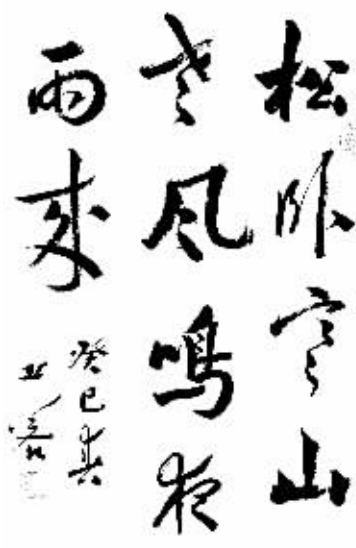 松卧寒山
老风鸣夜
雨来
癸巳春